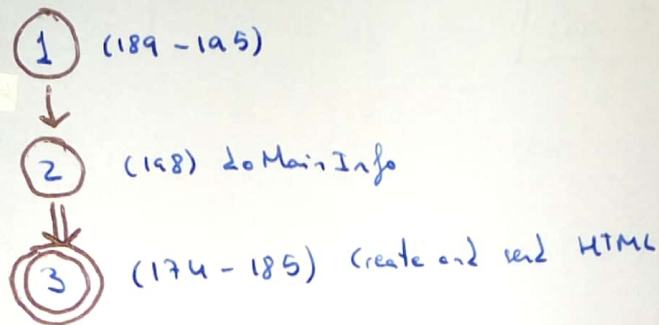 1 (189 - 195)
2 (198) doMainInfo
3 (174 - 185) Create and send HTML